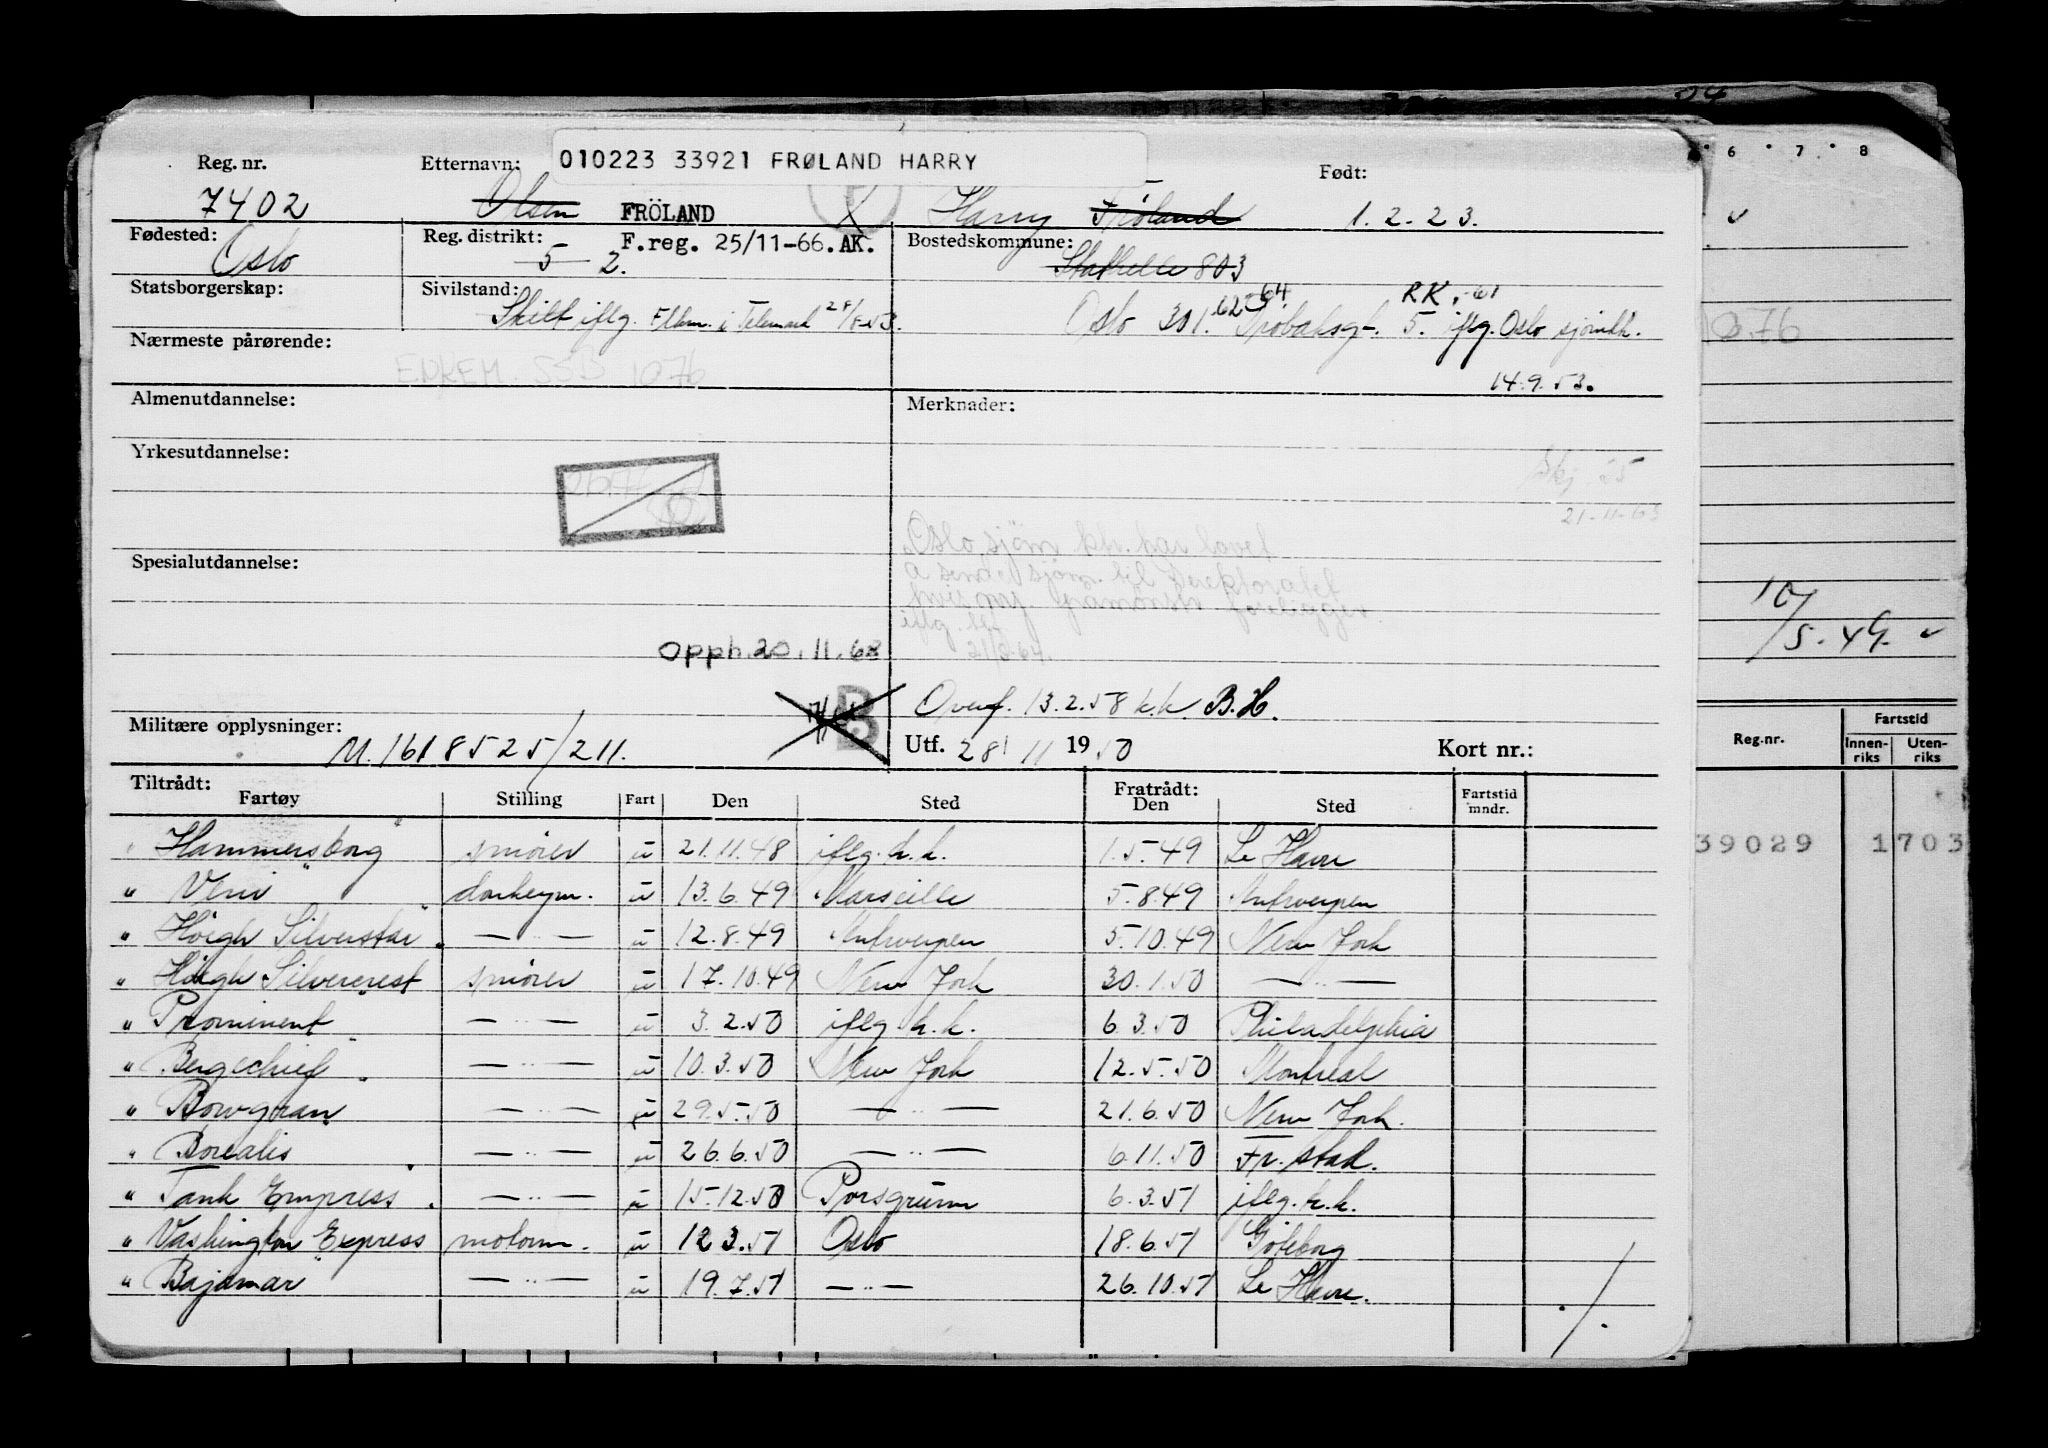 04
Reg. nr.
Etternavn:
010223 33921 FRØLAND HARRY
Født:
7402
Olsen FRÖLAND
Harry Fröland
1.2-23.
Fødested:
Oslo
Reg. distrikt:
5 2.
F.reg. 25/11-66. AK.
Bostedskommune:
Stathelle 803
Statsborgerskap:
Sivilstand:
Skilt iflg. i Telemark
RK. -61
Oslo 301. 5. iflg. Oslo
14.9.53.
Nærmeste pårørende:
SSB 1076
Almenutdannelse:
Merknader:
Yrkesutdannelse:
25
21-11-63
Oslo sjöm. har lovet
Spesialutdannelse:
a sende sjöm. til Direktoratet
foreligger.
iflg. tlf.
Opph. 20.11.68
Overf. 13.2.58 k.k. B.H.
B
Militære opplysninger:
M.1618525/211.
Utf. 28/11 1950
Kort nr.:
Tiltrådt:
Fratrådt:
Fartøy Stilling Fart Den Sted Den Sted Fartstid mndr.
" Hammersborg " smörer u 21.11.48 iflg. h.k. 1.5.49 Le Havre
" Veni " donkeym. u 13.6.49 Marseille 5.8.49 Antwerpen
" Höegh Silverstar " — " — u 12.8.49 Antwerpen 5.10.49 New York
" Höegh Silvercrest smörer u 17.10.49 New York 30.1.50 — " —
" Prominent " — " — u 3.2.50 iflg. h.k. 6.3.50 Philadelphia
" Bergechief " — " — u 10.3.50 New York 12.5.50 Montreal
" Bowgran — " — u 29.5.50 — " — 21.6.50 New York.
" Borealis " — " — u 26.6.50 — " — 6.11.50 Fr.stad.
" Tank Empress " — " — u 15.12.50 Porsgrunn 6.3.51 iflg. h.k.
" Washington Express motorm. u 12.3.51 Oslo 18.6.51 Göteborg
" Bajamar " — " — u 19.7.51 — " — 26.10.51 Le Havre.
./.
6 7 8
1076
10/5-49.
Reg.nr.
Fartstid
Innen-riks
Uten-riks
39029 1703